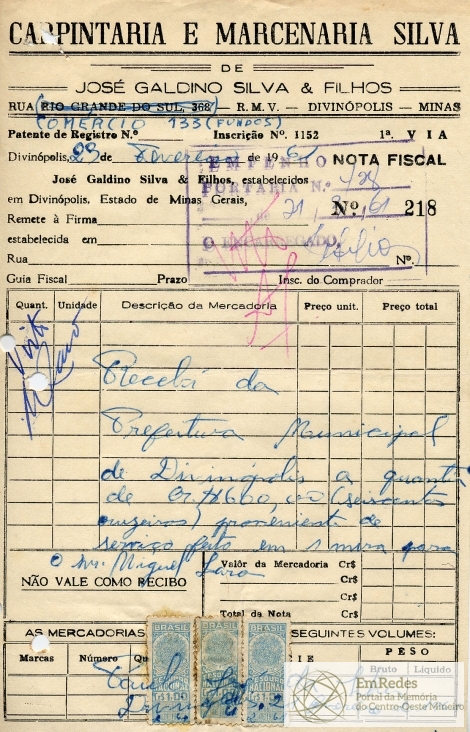 CARPINTARIA E MARCENARIA SILVA
DE
JOSÉ GALDINO SILVA & FILHOS
RUA RIO GRANDE DO SUL, 368 — R. M. V. — DIVINÓPOLIS — MINAS
COMÉRCIO 133 (FUNDOS)
Patente de Registro N.º Inscrição Nº. 1152 1ª. VIA
Divinópolis, 23 de Fevereiro de 1961 NOTA FISCAL
EMPENHO
José Galdino Silva & Filhos, estabelecidos
PORTARIA N.º
em Divinópolis, Estado de Minas Gerais,
Nº 218
Remete à Firma
O ENCARREGADO,
estabelecida em
Rua Nº.
Guia Fiscal Prazo Insc. do Comprador
Quant. Unidade Descrição da Mercadoria Preço unit. Preço total
Visto
Recebi da
Prefeitura Municipal
de Divinópolis a quantia
de Cr.$ 600,00 (seiscentos
cruzeiros) proveniente de
serviço feito em 1 mira para
o snr. Miguel Lara
Valor da Mercadoria Cr$
Cr$
NÃO VALE COMO RECIBO
Cr$
Total da Nota Cr$
AS MERCADORIAS SEGUINTES VOLUMES:
BRASIL BRASIL BRASIL
Marcas Número CIE PESO
Bruto Líquido
EmRedes
Portal da Memória
do Centro-Oeste Mineiro